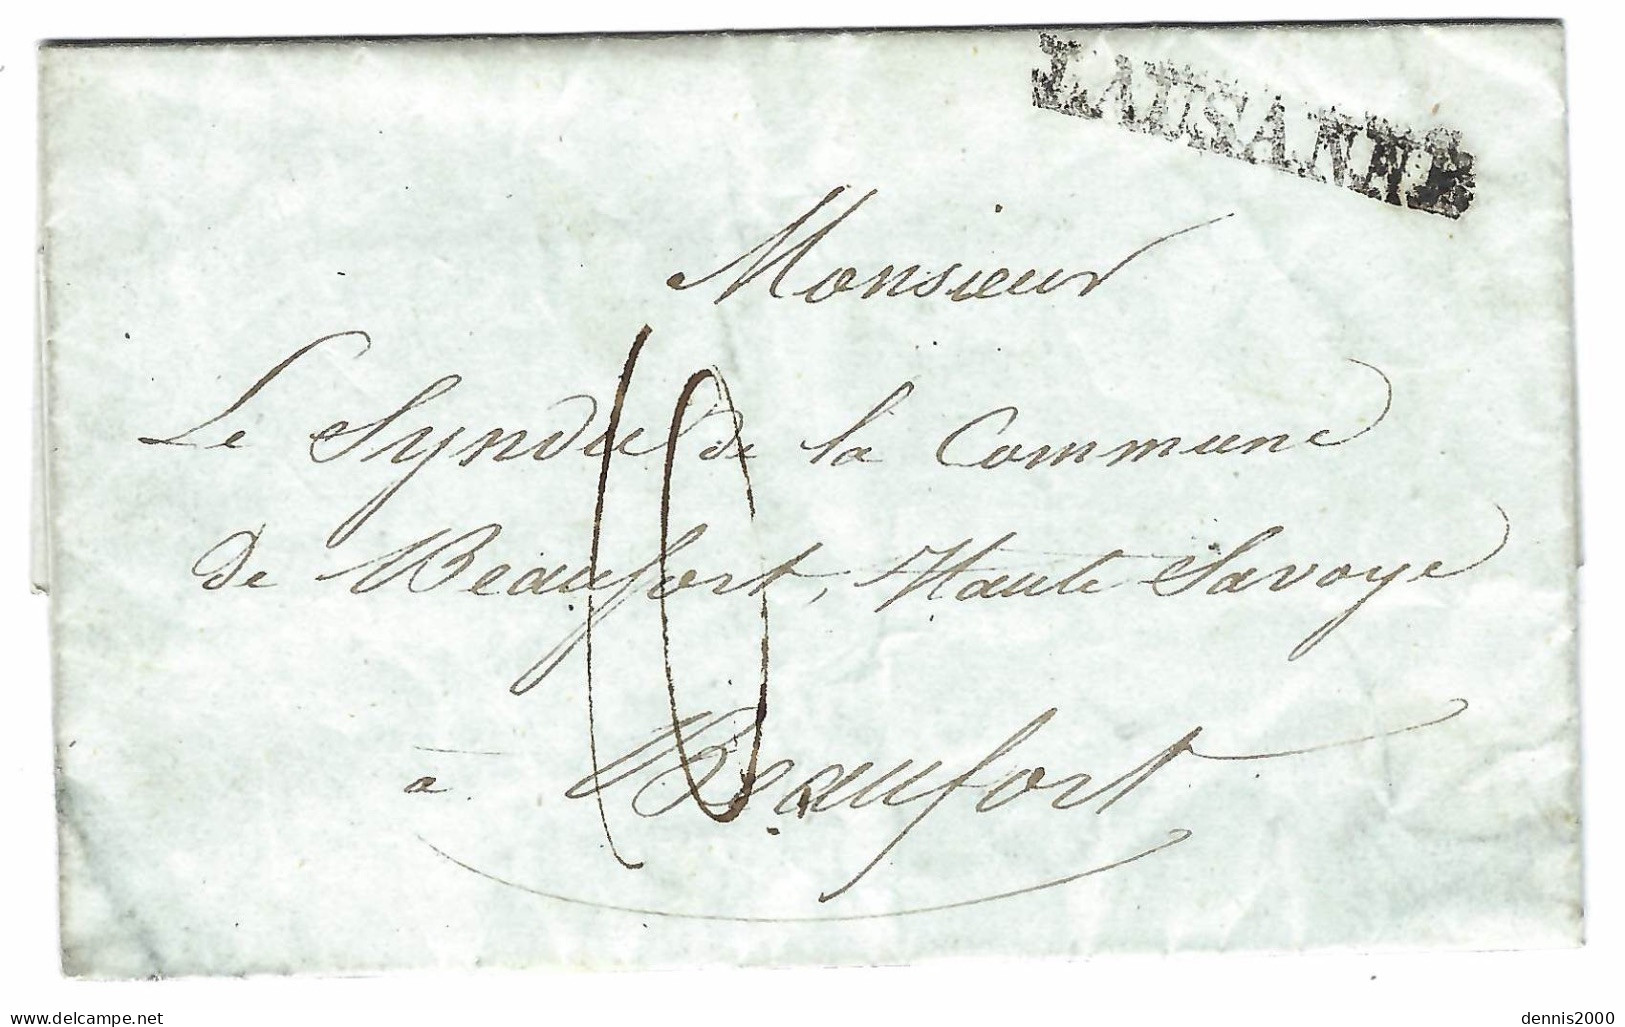 LAUSANNE
Monsieur
Le Syndic de la Commune
de Beaufort, Haute Savoye
10
à Beaufort
www.delcampe.net
dennis2000